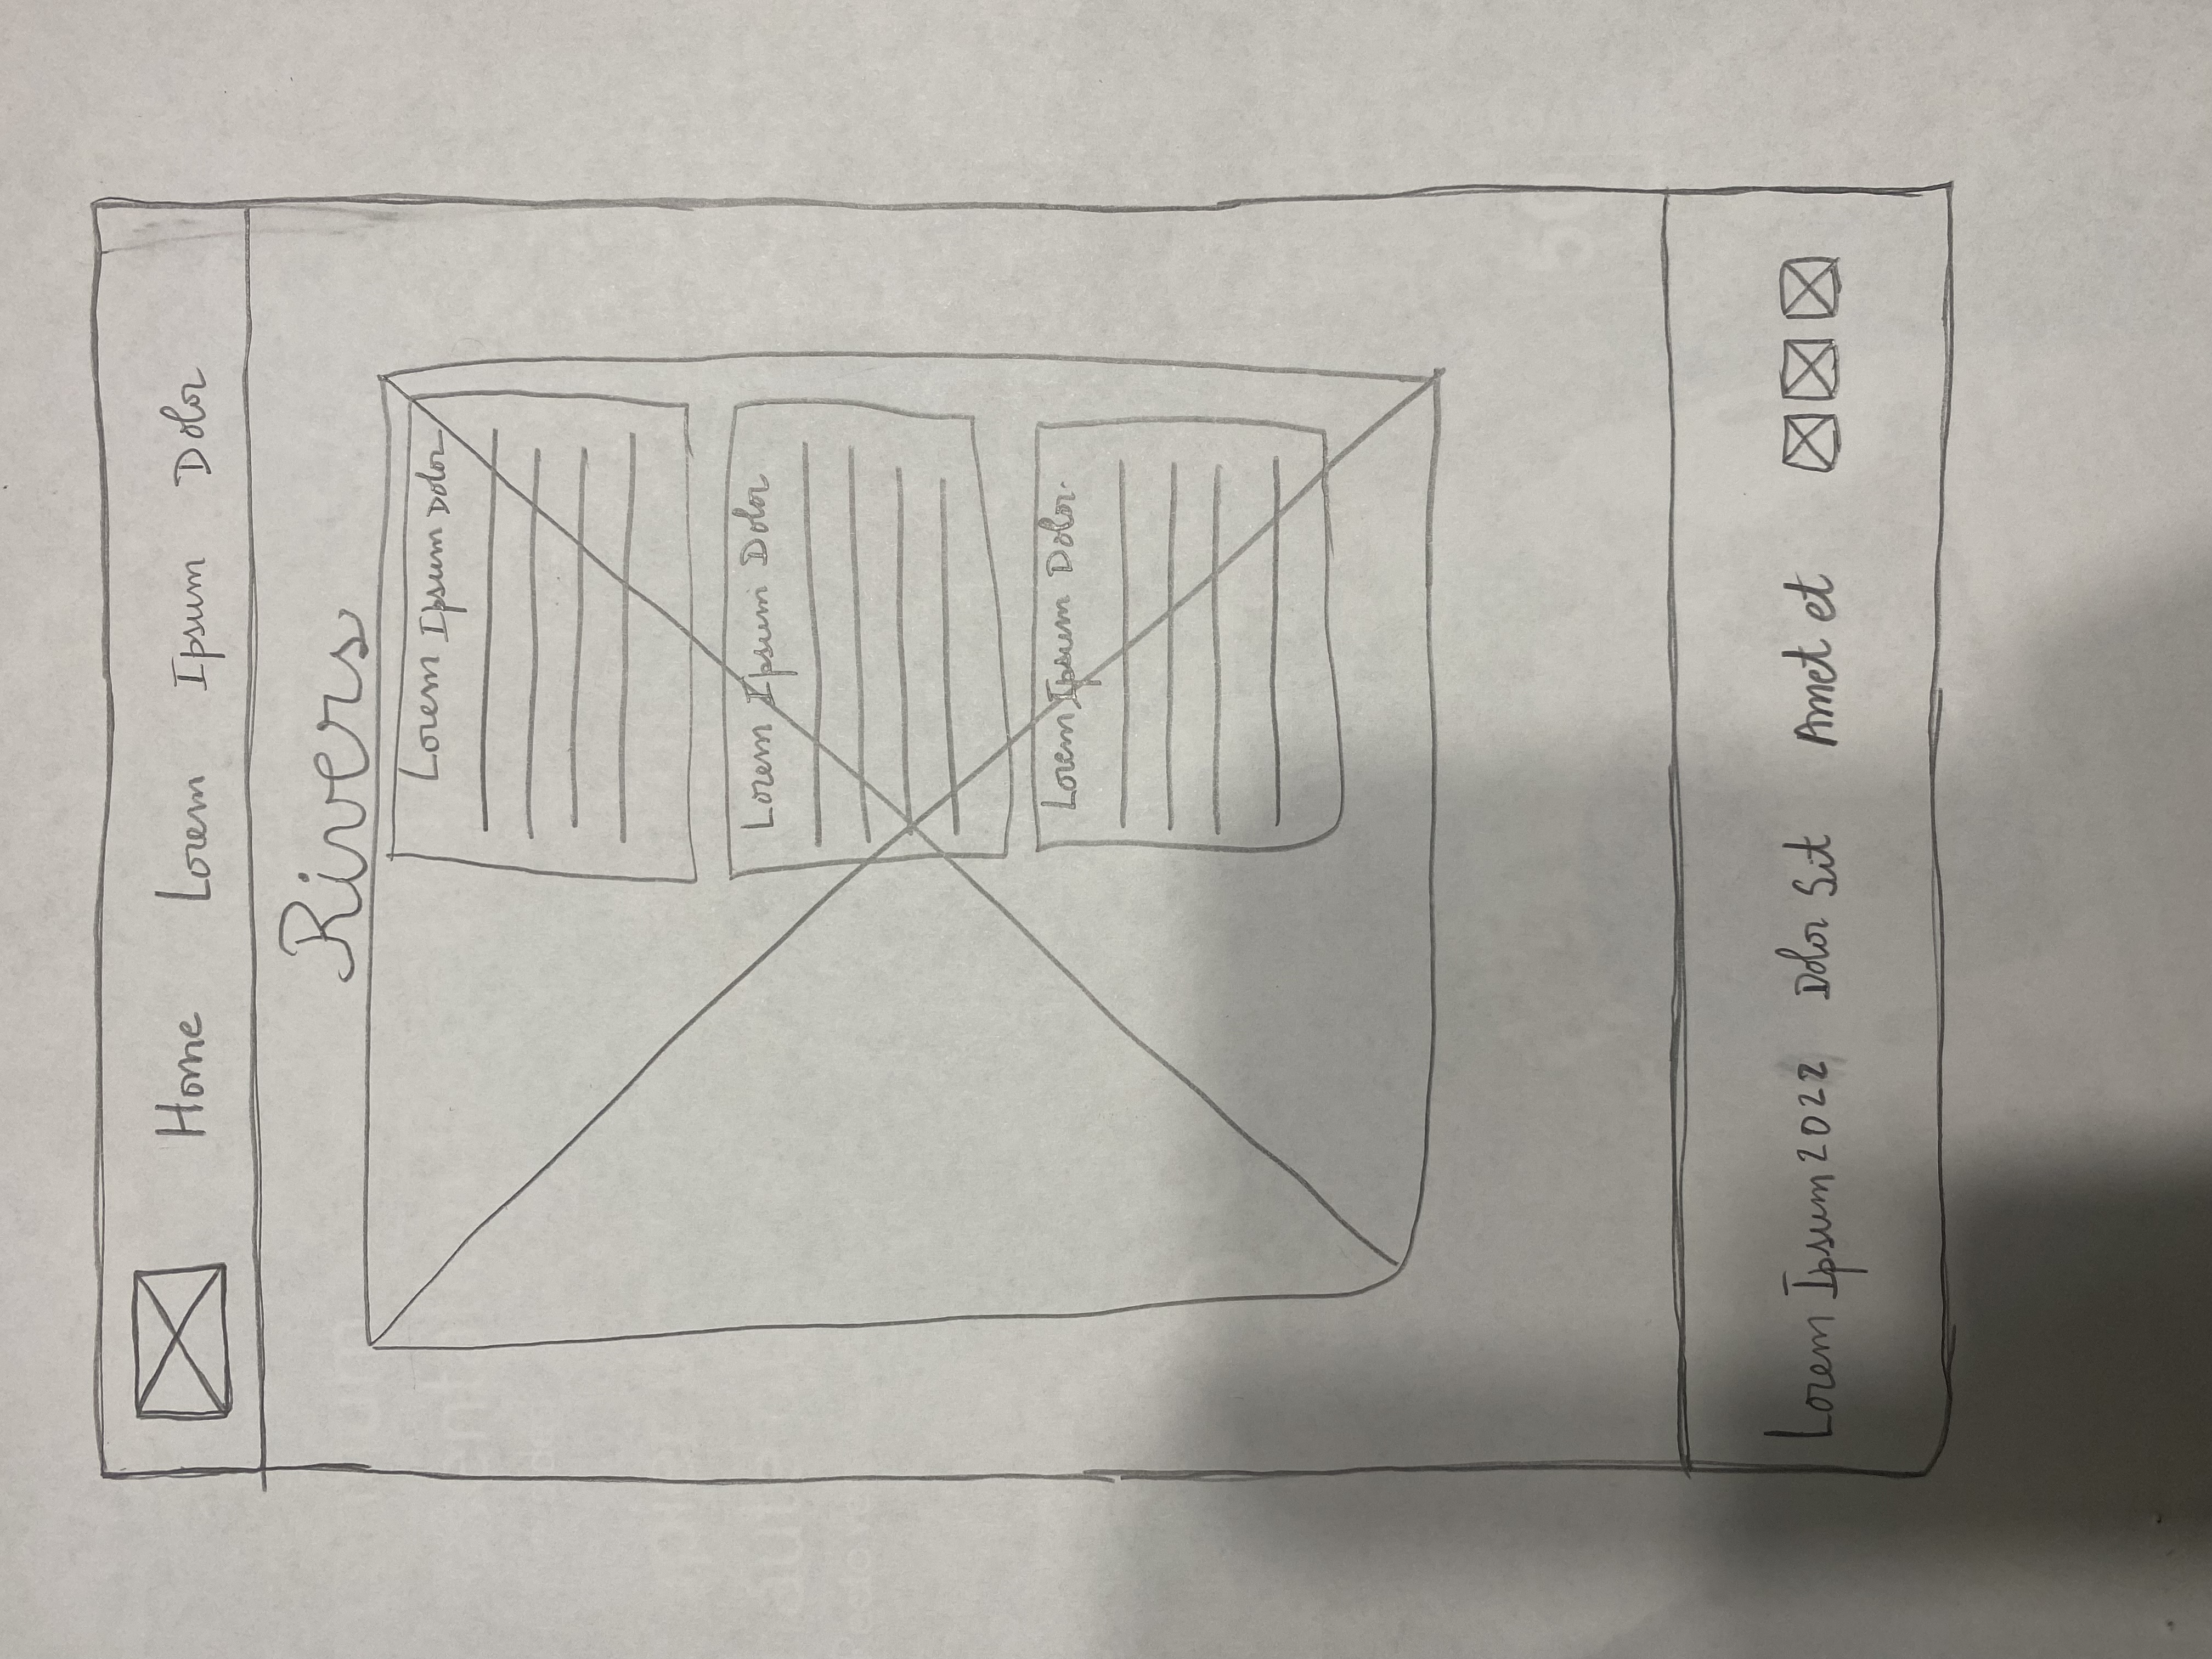 Home Lorem Ipsum Dolor
Rivers
Lorem Ipsum Dolor
Lorem Ipsum Dolor
Lorem Ipsum Dolor.
Lorem Ipsum 2022 Dolor Sit Amet et